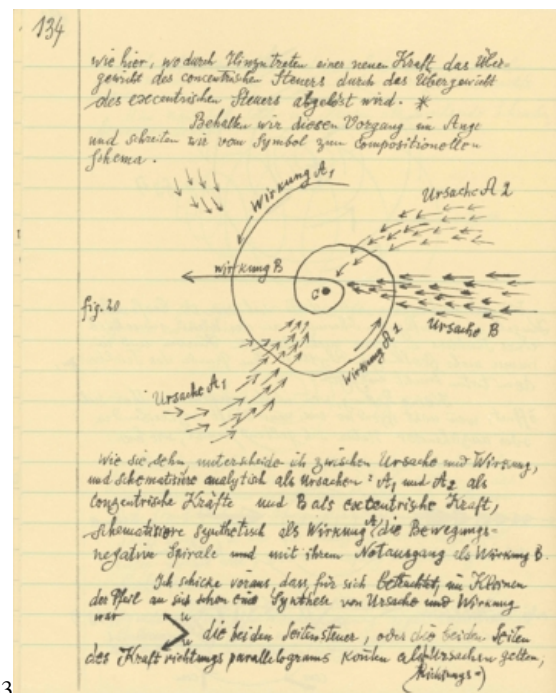 134
wie hier, wo durch Hinzutreten einer neuen Kraft das Über-
gewicht des concentrischen Steuers durch das Übergewicht
des excentrischen Steuers abgelöst wird. *
Behalten wir diesen Vorgang im Auge
und schreiten wir vom Symbol zum compositionellen
Schema.
Wirkung A1
Ursache A 2
Wirkung B
C
fig. 20
Ursache B
Wirkung A2
Ursache A1
Wie sie sehn, unterscheide ich zwischen Ursache und Wirkung,
und schematisire analytisch als Ursachen: A1 und A2 als
conzentrische Kräfte und B als excentrische Kraft,
schematisire synthetisch als Wirkung A die Bewegungs-
negative Spirale und mit ihrem Notausgang als Wirkung B.
Ich schicke voraus, dass, für sich betrachtet, im Kleinen
der Pfeil an sich schon eine Synthese von Ursache und Wirkung
war
u
u
die beiden Seitensteuer, oder die beiden Seiten
des Kraftrichtungsparallelograms konten als Ursachen gelten,
(Richtungs=)
3